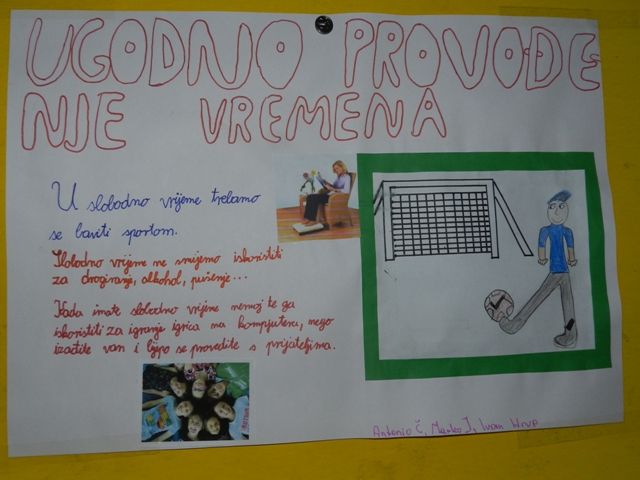 UGODNO PROVOĐE
NJE VREMENA
U slobodno vrijeme trebamo
se baviti sportom.
Slobodno vrijeme ne smijemo iskoristiti
za drogiranje, alkohol, pušenje...
Kada imate slobodno vrijeme nemojte ga
iskoristiti za igranje igrica na kompjuteru, nego
izađite van i lijepo se provedite s prijateljima.
Antonio Č, Marko J, Ivan